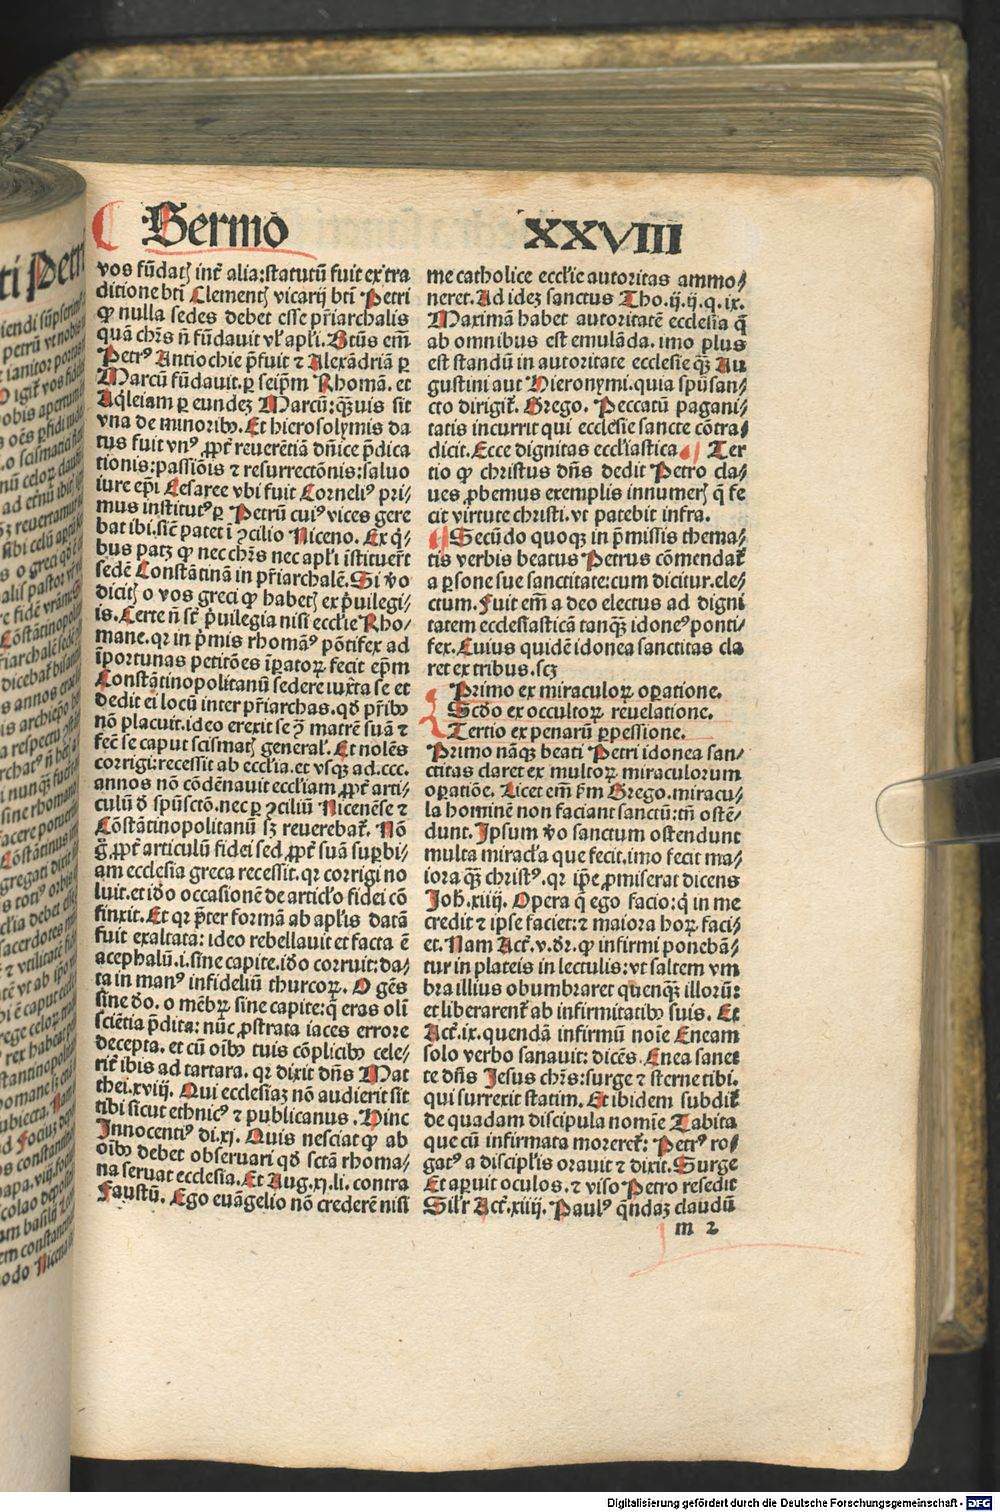 Sermo XXVIII
vos fūdatꝭ int̄ alia: statutū fuit ex tra
ditione bt̄i Clementꝭ vicarij bt̄i Petri
ꝙ nulla sedes debet esse pr̄iarchalis
quā chr̄s n̄ fūdauit vl' apl'i. Bt̄us em̄
Petrꝰ Antiochie p̄fuit ⁊ Alexādriā ꝑ
Marcū fūdavit. ꝑ seip̄m Rhomā. et
Aq̄leiam ꝑ eundeꝫ Marcū: qꝫuis sit
vna de minoribꝰ. Et hierosolymis da
tus fuit vnꝰ ꝓpt̄ reuerētiā dn̄ice p̄dica
tionis: passiōis ⁊ resurrectōnis: saluo
iure ep̄i Cesaree vbi fuit Corneliꝰ pri-
mus institutꝰ ꝑ Petrū cuiꝰ vices gere
bat ibi. sic̄ patet ī ꝯcilio Niceno. Ex q̄-
bus patꝫ ꝙ nec chr̄s nec apl'i īstituer̄t
sedē Constātinā in pr̄iarchalē. Si v̓o
dicitꝭ o vos greci ꝙ habetꝭ ex p̓uilegi-
is. Certe n̄ st̄ p̓uilegia nisi eccl'ie Rho-
mane. qr in p̓mis rhomāꝰ pōtifex ad
īportunas petitōes īꝑatoꝝ fecit ep̄m
Constātinopolitanū sedere iuxta se et
dedit ei locū inter pr̄iarchas. qđ pr̄ibꝰ
nō placuit. ideo erexit se ꝯ̄ matrē suā ⁊
fec̄ se caput scismatꝭ general'. Et nolēs
corrigi: recessit ab eccl'ia. et vsqꝫ ad .ccc.
annos nō cōdēnauit eccl'iam ꝓpt̄ arti-
culū đ spūsctō. nec ꝑ ꝯciliū Nicenēse ⁊
Cōstātinopolitanū sꝫ reuerebat̄. Nō
g̊ ꝓpt̄ articulū fidei sed ꝓpt̄ suā suꝑbi-
am ecclesia greca recessit. qr corrigi no
luit. et iđo occasionē de articl'o fidei cō
finxit. Et qr p̄ter formā ab apl'is datā
fuit exaltata: ideo rebellauit et facta ē
acephalū .i. sine capite. iđo corruit: da-
ta in manꝰ infideliū thurcoꝝ. O gēs
sine đo. o mēbꝝ sine capite: q̄ eras oli̅
sciētia p̄dita: nūc ꝓstrata iaces errore
decepta. et cū oībꝰ tuis cōplicibꝰ cele-
rit̄ ibis ad tartara. qr dixit dn̄s Mat
thei .xviij. Qui ecclesiaꝫ nō audierit sit
tibi sicut ethnicꝰ ⁊ publicanus. Hinc
Innocentiꝰ di. xj. Quis nesciat ꝙ ab
oībꝰ debet obseruari qđ sctā rhoma-
na seruat ecclesia. Et Aug. xj. li. contra
Faustū. Ego euāgelio nō crederē nisi
me catholice eccl'ie autoritas ammo-
neret. Ad ideꝫ sanctus Tho. ij. ij. q. ix.
Maximā habet autoritatē ecclesia q̄
ab omnibus est emulāda. imo plus
est standū in autoritate ecclesie qꝫ Au
gustini aut Hieronymi. quia spū san-
cto dirigit̄. Grego. Peccatū pagani-
tatis incurrit qui ecclesie sancte cōtra-
dicit. Ecce dignitas eccl'iastica. ¶ Ter
tio ꝙ christus dn̄s dedit Petro cla-
ues ꝓbemus exemplis innumerꝭ q̄ fe
cit virtute christi. vt patebit infra.
¶ Secūdo quoqꝫ in p̄missis thema-
tis verbis beatus Petrus cōmendat̄
a ꝑsone sue sanctitate: cum dicitur. ele-
ctum. Fuit em̄ a deo electus ad digni
tatem ecclesiasticā tanqꝫ idoneꝰ ponti-
fex. Cuius quidē idonea sanctitas cla
ret ex tribus. scꝫ
Primo ex miraculoꝝ oꝑatione.
Scđo ex occultoꝝ reuelatione.
Tertio ex penarū ꝑpessione.
Primo nāqꝫ beati Petri idonea san-
ctitas claret ex multoꝝ miraculorum
oꝑatiōe. Licet em̄ ẜm Grego. miracu-
la hominē non faciant sanctū: tn̄ ostē-
dunt. Ipsum v̓o sanctum ostendunt
multa miracl'a que fecit. imo fecit ma-
iora qꝫ christꝰ. qr ip̄e ꝓmiserat dicens
Joh̄. xiiij. Opera q̄ ego facio: q̄ in me
credit ⁊ ipse faciet: ⁊ maiora hoꝝ faci-
et. Nam Act̄. v. dr̄. ꝙ infirmi ponebā-
tur in plateis in lectulis: vt saltem vm
bra illius obumbraret quenqꝫ illorū:
et liberarent̄ ab infirmitatibꝰ suis. Et
Act̄. ix. quendā infirmū noīe Eneam
solo verbo sanauit: dicēs. Enea sanet
te dn̄s Jesus chr̄s: surge ⁊ sterne tibi.
qui surrexit statim. Et ibidem subdit̄
de quadam discipula nomīe Tabita
que cū infirmata moreret̄: Petrꝰ ro-
gatꝰ a discipl'is orauit ⁊ dixit. Surge
Et aꝑuit oculos. ⁊ viso Petro resedit
Sil'r Act̄. xiiij. Paulꝰ q̄ndaꝫ claudū
m 2
Digitalisierung gefördert durch die Deutsche Forschungsgemeinschaft - DFG